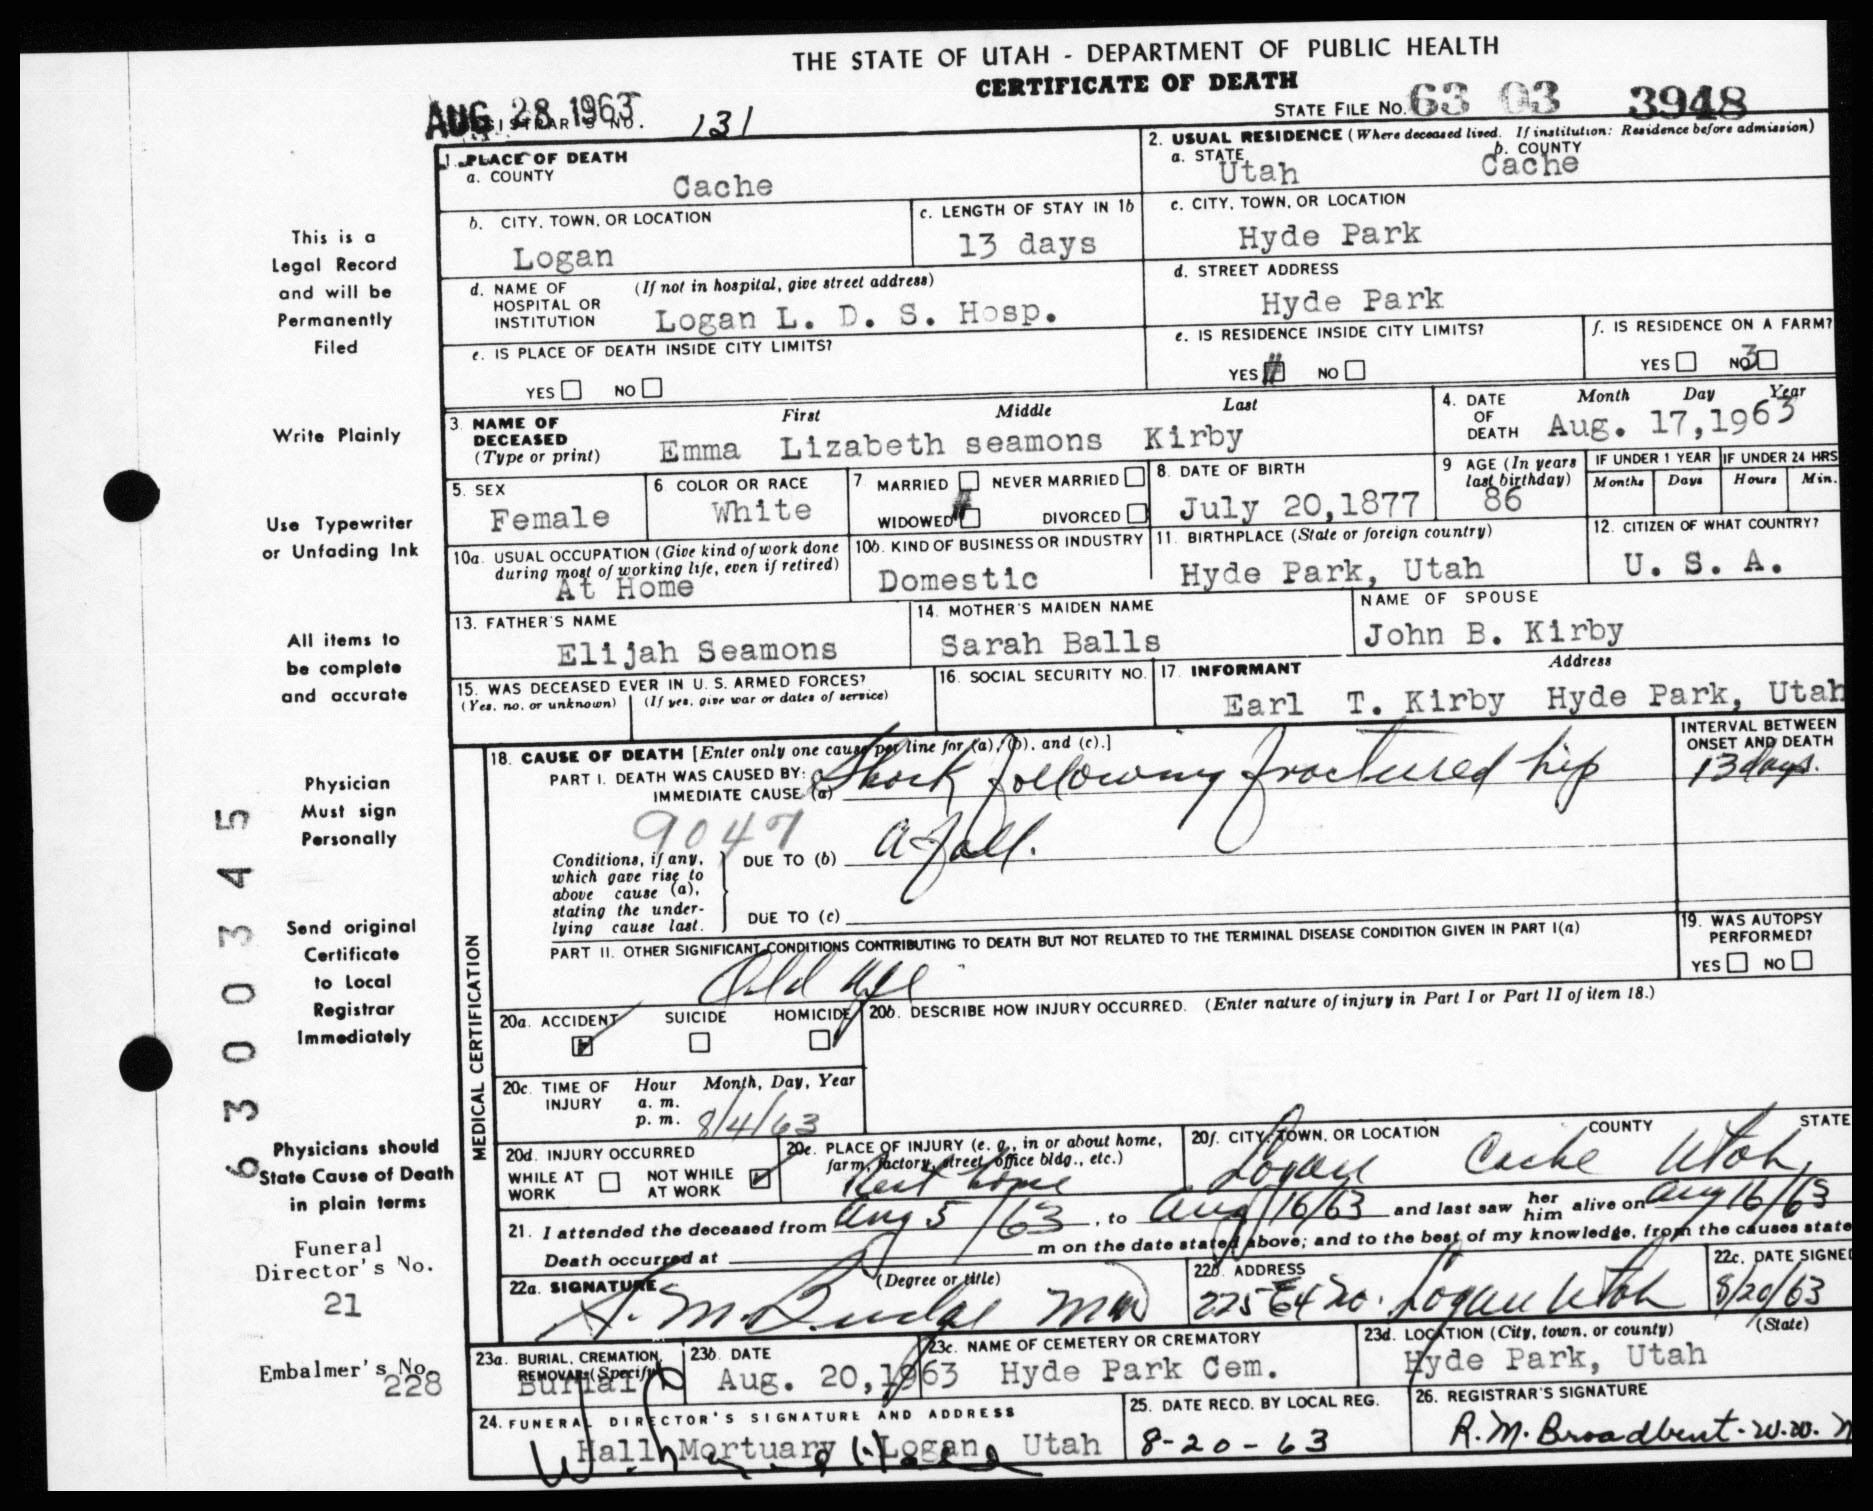 THE STATE OF UTAH - DEPARTMENT OF PUBLIC HEALTH
CERTIFICATE OF DEATH
STATE FILE NO. 63 03 3948
AUG 28 1963
REGISTRAR'S NO. 131
1. PLACE OF DEATH
a. COUNTY Cache
2. USUAL RESIDENCE (Where deceased lived. If institution: Residence before admission)
a. STATE Utah b. COUNTY Cache
b. CITY, TOWN, OR LOCATION Logan
c. LENGTH OF STAY IN 1b 13 days
c. CITY, TOWN, OR LOCATION Hyde Park
d. NAME OF HOSPITAL OR INSTITUTION (If not in hospital, give street address) Logan L. D. S. Hosp.
d. STREET ADDRESS Hyde Park
e. IS PLACE OF DEATH INSIDE CITY LIMITS?
YES NO
e. IS RESIDENCE INSIDE CITY LIMITS?
YES NO
f. IS RESIDENCE ON A FARM?
YES NO 3
3. NAME OF DECEASED (Type or print)
First Middle Last
Emma Lizabeth seamons Kirby
4. DATE OF DEATH Month Day Year
Aug. 17,1963
5. SEX Female
6. COLOR OR RACE White
7. MARRIED NEVER MARRIED
WIDOWED DIVORCED
8. DATE OF BIRTH July 20,1877
9 AGE (In years last birthday) 86
IF UNDER 1 YEAR Months Days
IF UNDER 24 HRS Hours Min.
10a. USUAL OCCUPATION (Give kind of work done during most of working life, even if retired) At Home
10b. KIND OF BUSINESS OR INDUSTRY Domestic
11. BIRTHPLACE (State or foreign country) Hyde Park, Utah
12. CITIZEN OF WHAT COUNTRY? U. S. A.
13. FATHER'S NAME Elijah Seamons
14. MOTHER'S MAIDEN NAME Sarah Balls
NAME OF SPOUSE John B. Kirby
15. WAS DECEASED EVER IN U. S. ARMED FORCES?
(Yes, no, or unknown) (If yes, give war or dates of service)
16. SOCIAL SECURITY NO.
17. INFORMANT Address
Earl T. Kirby Hyde Park, Utah
18. CAUSE OF DEATH [Enter only one cause per line for (a), (b), and (c).]
INTERVAL BETWEEN ONSET AND DEATH
PART I. DEATH WAS CAUSED BY:
IMMEDIATE CAUSE (a) Shock following fractured hip 13 days.
9047
Conditions, if any, which gave rise to above cause (a), stating the underlying cause last.
DUE TO (b) A fall.
DUE TO (c)
PART II. OTHER SIGNIFICANT CONDITIONS CONTRIBUTING TO DEATH BUT NOT RELATED TO THE TERMINAL DISEASE CONDITION GIVEN IN PART I(a)
Old Age
19. WAS AUTOPSY PERFORMED?
YES NO
20a. ACCIDENT SUICIDE HOMICIDE
20b. DESCRIBE HOW INJURY OCCURRED. (Enter nature of injury in Part I or Part II of item 18.)
20c. TIME OF INJURY Hour a. m. p. m. Month, Day, Year
8/4/63
20d. INJURY OCCURRED
WHILE AT WORK NOT WHILE AT WORK
20e. PLACE OF INJURY (e. g., in or about home, farm, factory, street, office bldg., etc.)
Rest home
20f. CITY, TOWN, OR LOCATION COUNTY STATE
Logan Cache Utah
21. I attended the deceased from Aug 5/63, to Aug/16/63 and last saw her him alive on Aug 16/63
Death occurred at m on the date stated above; and to the best of my knowledge, from the causes state
22a. SIGNATURE (Degree or title)
S. M. Budge MD
22b. ADDRESS
Logan Utah
22c. DATE SIGNED
8/20/63
23a. BURIAL, CREMATION, REMOVAL (Specify) Burial
23b. DATE Aug. 20,1963
23c. NAME OF CEMETERY OR CREMATORY Hyde Park Cem.
23d. LOCATION (City, town, or county) (State)
Hyde Park, Utah
24. FUNERAL DIRECTOR'S SIGNATURE AND ADDRESS
Hall Mortuary Logan, Utah
25. DATE RECD. BY LOCAL REG.
8-20-63
26. REGISTRAR'S SIGNATURE
R. M. Broadbent
MEDICAL CERTIFICATION
This is a
Legal Record
and will be
Permanently
Filed
Write Plainly
Use Typewriter
or Unfading Ink
All items to
be complete
and accurate
Physician
Must sign
Personally
Send original
Certificate
to Local
Registrar
Immediately
Physicians should
State Cause of Death
in plain terms
Funeral
Director's No.
21
Embalmer's No.
228
6300345